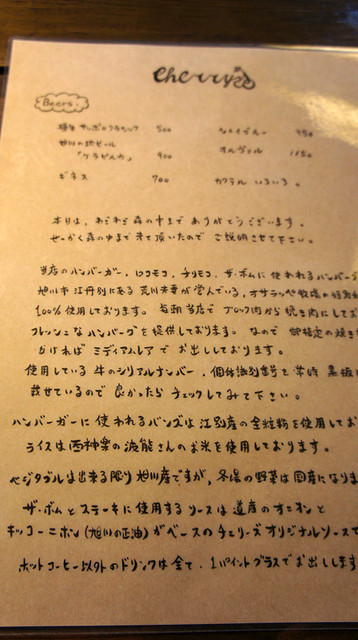 cherry's
Beers.
樽生 サッポロクラシック 500
シメイブルー 950
旭川の地ビール
「ケラピルカ」 900
オルヴァル 1150
ギネス 700
カクテル いろいろ。
本日は、わざわざ森の中まで ありがとうございます。
せっかく森の中まで来て頂いたので ご説明させて下さい。
当店のハンバーガー、ロコモコ、チリモコ、ザ・ボムに使われるハンバーグ
旭川市江丹別にある 荒川未華が営んでいる、オサラッペ牧場の
100%使用しております。毎朝当店で ブロック肉から挽き肉にしてお
フレッシュなハンバーグを提供しております。なので 御指定の焼き
がければ ミディアムレアで お出ししております。
使用している 牛のシリアルナンバー、個体識別番号を常時 黒板
載せているので 良かったら チェックしてみて下さい。
ハンバーガーに使われるバンズは江別産の全粒粉を使用してお
ライスは西神楽の さんのお米を使用しております。
ベジタブルは出来る限り旭川産ですが、冬場の野菜は国産になりま
ザ・ボムとステーキに使用するソースは道産のオニオンと
キッコーニホン(旭川の正油)がベースのチェリーズオリジナルソースで
ホットコーヒー以外のドリンクは全て、1パイントグラスでお出しします